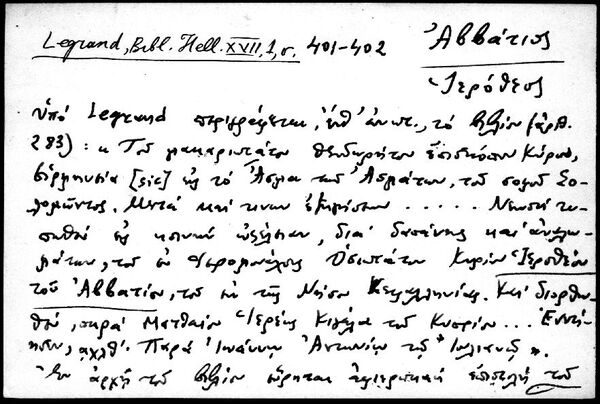 Legrand, Bibl. Hell. XVII, 1, σ. 401-402 Ἀββάτιος
Ἱερόθεος
ὑπό Legrand περιγράφεται, ἐνθ' ἀνωτ., τό βιβλίον (ἀρθ.
283): « Τοῦ μακαριωτάτου Θεοδωρήτου ἐπισκόπου Κύρου,
[sic] εἰς τό Ἆσμα τῶν Ἀσμάτων, τοῦ σοφοῦ Σο-
λομῶντος. Μετά καί τινων ..... Νεωστί τυ-
πωθέν εἰς κοινήν ὠφέλειαν, διά δαπάνης καί ἀναλω-
μάτων, τοῦ ἐν Ἱερομονάχοις Ὁσιωτάτου Κυρίου Ἱεροθέου
τοῦ Ἀββατίου, τοῦ ἐκ τῆς Νήσου Κεφαλληνίας. Καί διορθω-
θέν, παρά Ματθαίου Ἱερέως Κιγάλα τοῦ Κυπρίου... Ἑνετί-
ησιν, αχλθ'. Παρά Ἰωάννῃ Ἀντωνίῳ τῷ Ἰουλιανῷ ».
Ἐν ἀρχῇ τοῦ βιβλίου εὕρηται ἀφιερωτική ἐπιστολή τοῦ